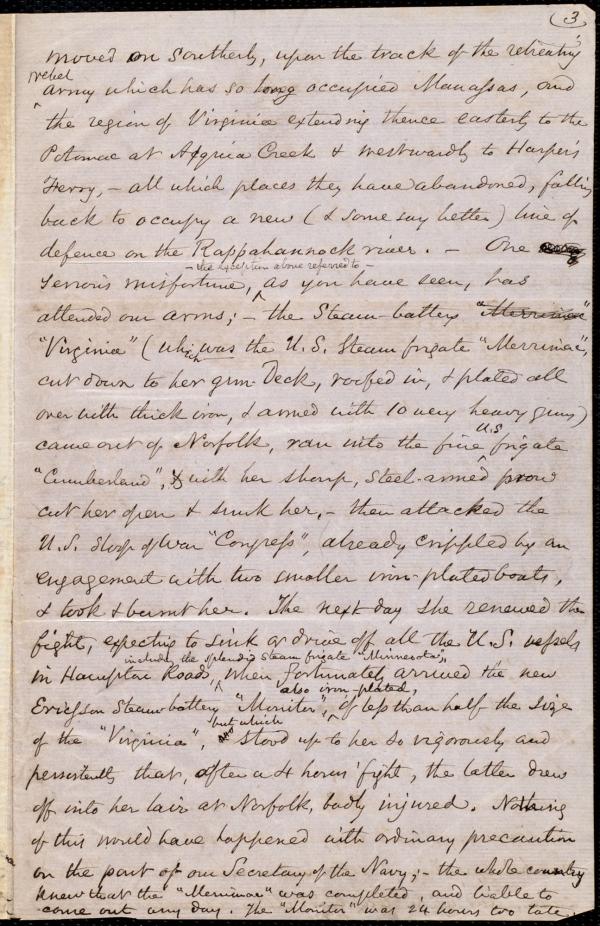 3
moved on southerly, upon the track of the retreating
rebel
army which has so long occupied Manassas, and
the region of Virginia extending thence easterly to the
Potomac at Acquia Creek & westwardly to Harper's
Ferry, – all which places they have abandoned, falling
back to occupy a new (& some say better) line of
defence on the Rappahannock river. – One
– the exception above referred to –
serious misfortune, as you have seen, has
attended our arms; – the Steam-battery "Merrimac"
"Virginia" (which was the U.S. Steam frigate "Merrimac",
cut down to her gun Deck, roofed in, & plated all
over with thick iron, & armed with 10 very heavy guns)
U.S.
came out of Norfolk, ran into the fine frigate
"Cumberland", & with her sharp, steel-armed prow
cut her open & sunk her, – then attacked the
U.S. Sloop of War "Congress", already crippled by an
engagement with two smaller iron-plated boats,
& took & burnt her. The next day she renewed the
fight, expecting to sink or drive off all the U.S. vessels
includg the splendid Steam frigate "Minnesota",
in Hampton Roads, when fortunately arrived the new
also iron-plated,
Ericsson Steam battery "Monitor", of less than half the size
but which
of the "Virginia", stood up to her so vigorously and
persistently that, after a 4 hours' fight, the latter drew
off into her lair at Norfolk, badly injured. Nothing
of this would have happened with ordinary precaution
on the part of our Secretary of the Navy; – the whole country
knew that the "Merrimac" was completed, and liable to
come out any day. The "Monitor" was 24 hours too late